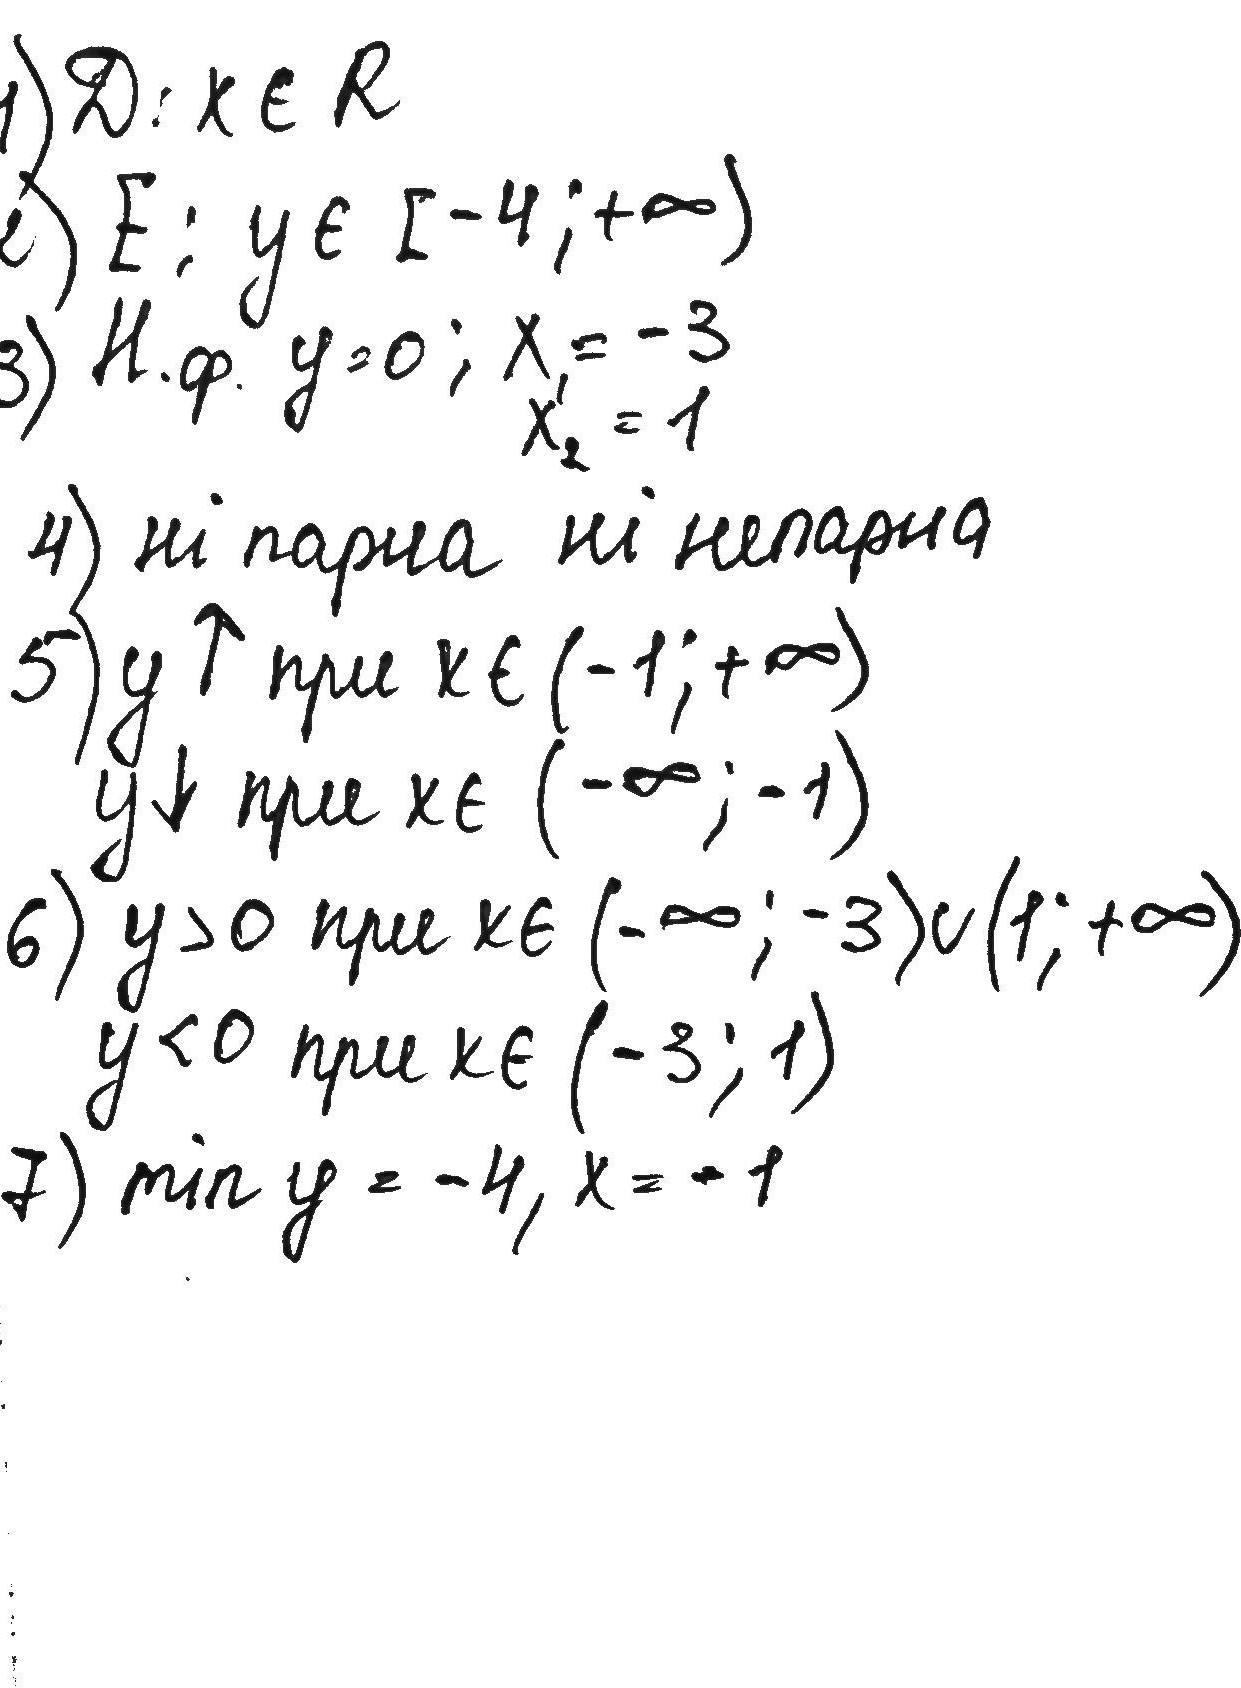 1) D: x ∈ R
2) E: y ∈ [-4; +∞)
3) Н.ф. y=0; x₁ = -3
x₂ = 1
4) ні парна ні непарна
5) y↑ при x ∈ (-1; +∞)
y↓ при x ∈ (-∞; -1)
6) y>0 при x ∈ (-∞; -3) ∪ (1; +∞)
y<0 при x ∈ (-3; 1)
7) min y = -4, x = -1